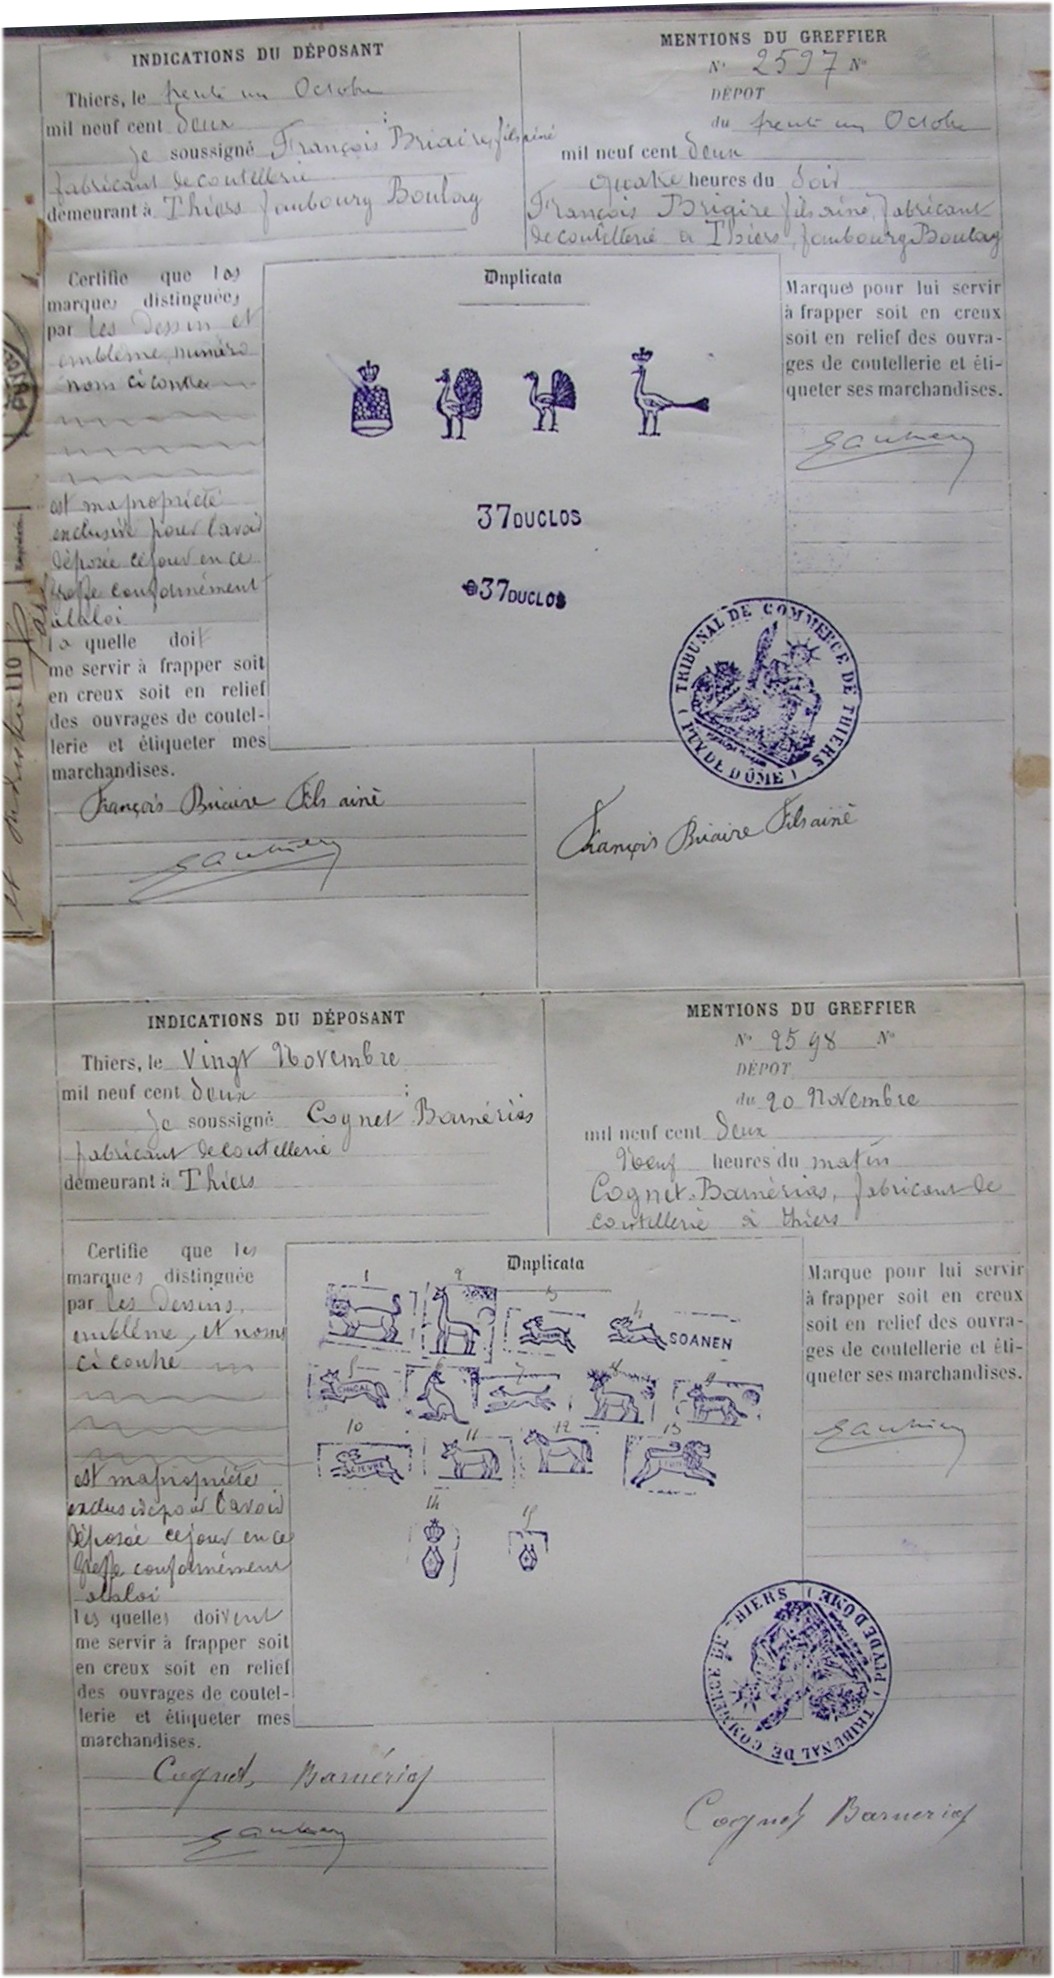 INDICATIONS DU DÉPOSANT
Thiers, le trente un Octobre
mil neuf cent deux
je soussigné François Briaire fils aîné
fabricant de coutellerie
demeurant à Thiers faubourg Boulay
Certifie que les
marques distinguées
par les dessin et
emblême, numéro
nom ci contre
est ma propriété
exclusive pour l'avoir
déposée ce jour en ce
greffe conformément
à la loi
la quelle doit
me servir à frapper soit
en creux soit en relief
des ouvrages de coutel-
lerie et étiqueter mes
marchandises.
François Briaire Fils ainé
Duplicata
37 DUCLOS
37 DUCLOS
TRIBUNAL DE COMMERCE DE THIERS
( PUY DE DÔME )
MENTIONS DU GREFFIER
No 2597 No
DÉPOT
du trente un Octobre
mil neuf cent deux
quatre heures du Soir
François Brigire fils ainé, fabricant
de coutellerie à Thiers, faubourg Boulay
Marques pour lui servir
à frapper soit en creux
soit en relief des ouvra-
ges de coutellerie et éti-
queter ses marchandises.
François Briaire Fils ainé
110
INDICATIONS DU DÉPOSANT
Thiers, le Vingt Novembre
mil neuf cent deux
je soussigné Cognet Barnérias
fabricant de coutellerie
demeurant à Thiers
Certifie que les
marques distinguée
par les dessins,
emblême, et noms
ci contre
est ma propriété
exclusive pour l'avoir
déposée ce jour en ce
greffe conformément
à la loi
les quelles doivent
me servir à frapper soit
en creux soit en relief
des ouvrages de coutel-
lerie et étiqueter mes
marchandises.
Cognet Barnérias
Duplicata
1 2 3 4
SOANEN
5 6 7 8 9
CHACAL
10 11 12 13
LIEVRE
14 15
TRIBUNAL DE COMMERCE DE THIERS
( PUY DE DÔME )
MENTIONS DU GREFFIER
No 2598 No
DÉPOT
du 20 Novembre
mil neuf cent deux
Neuf heures du matin
Cognet-Barnérias, fabricant de
coutellerie à Thiers
Marque pour lui servir
à frapper soit en creux
soit en relief des ouvra-
ges de coutellerie et éti-
queter ses marchandises.
Cognet Barnerias